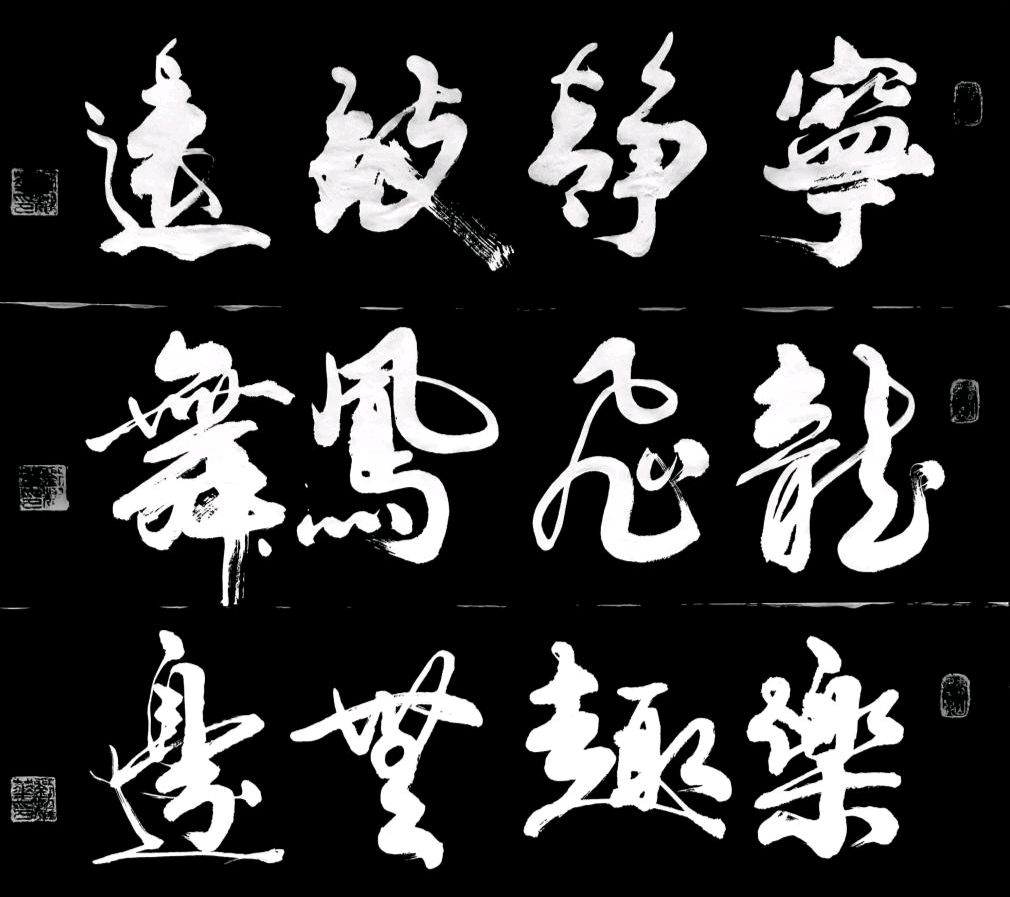 寧靜致遠
龍飛鳳舞
樂趣無邊